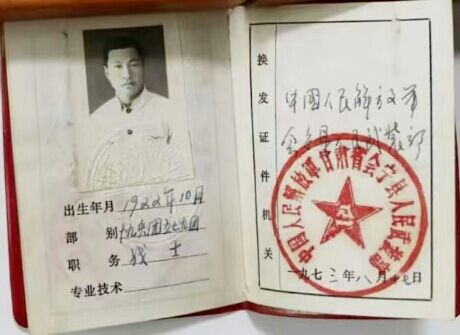 出生年月 1922年10月
部 别 十九兵团五七九团
职 务 战士
专业技术
换发证件机关
中国人民解放军
会宁县人民武装部
中国人民解放军甘肃省会宁县人民武装部
一九七三年八月十七日